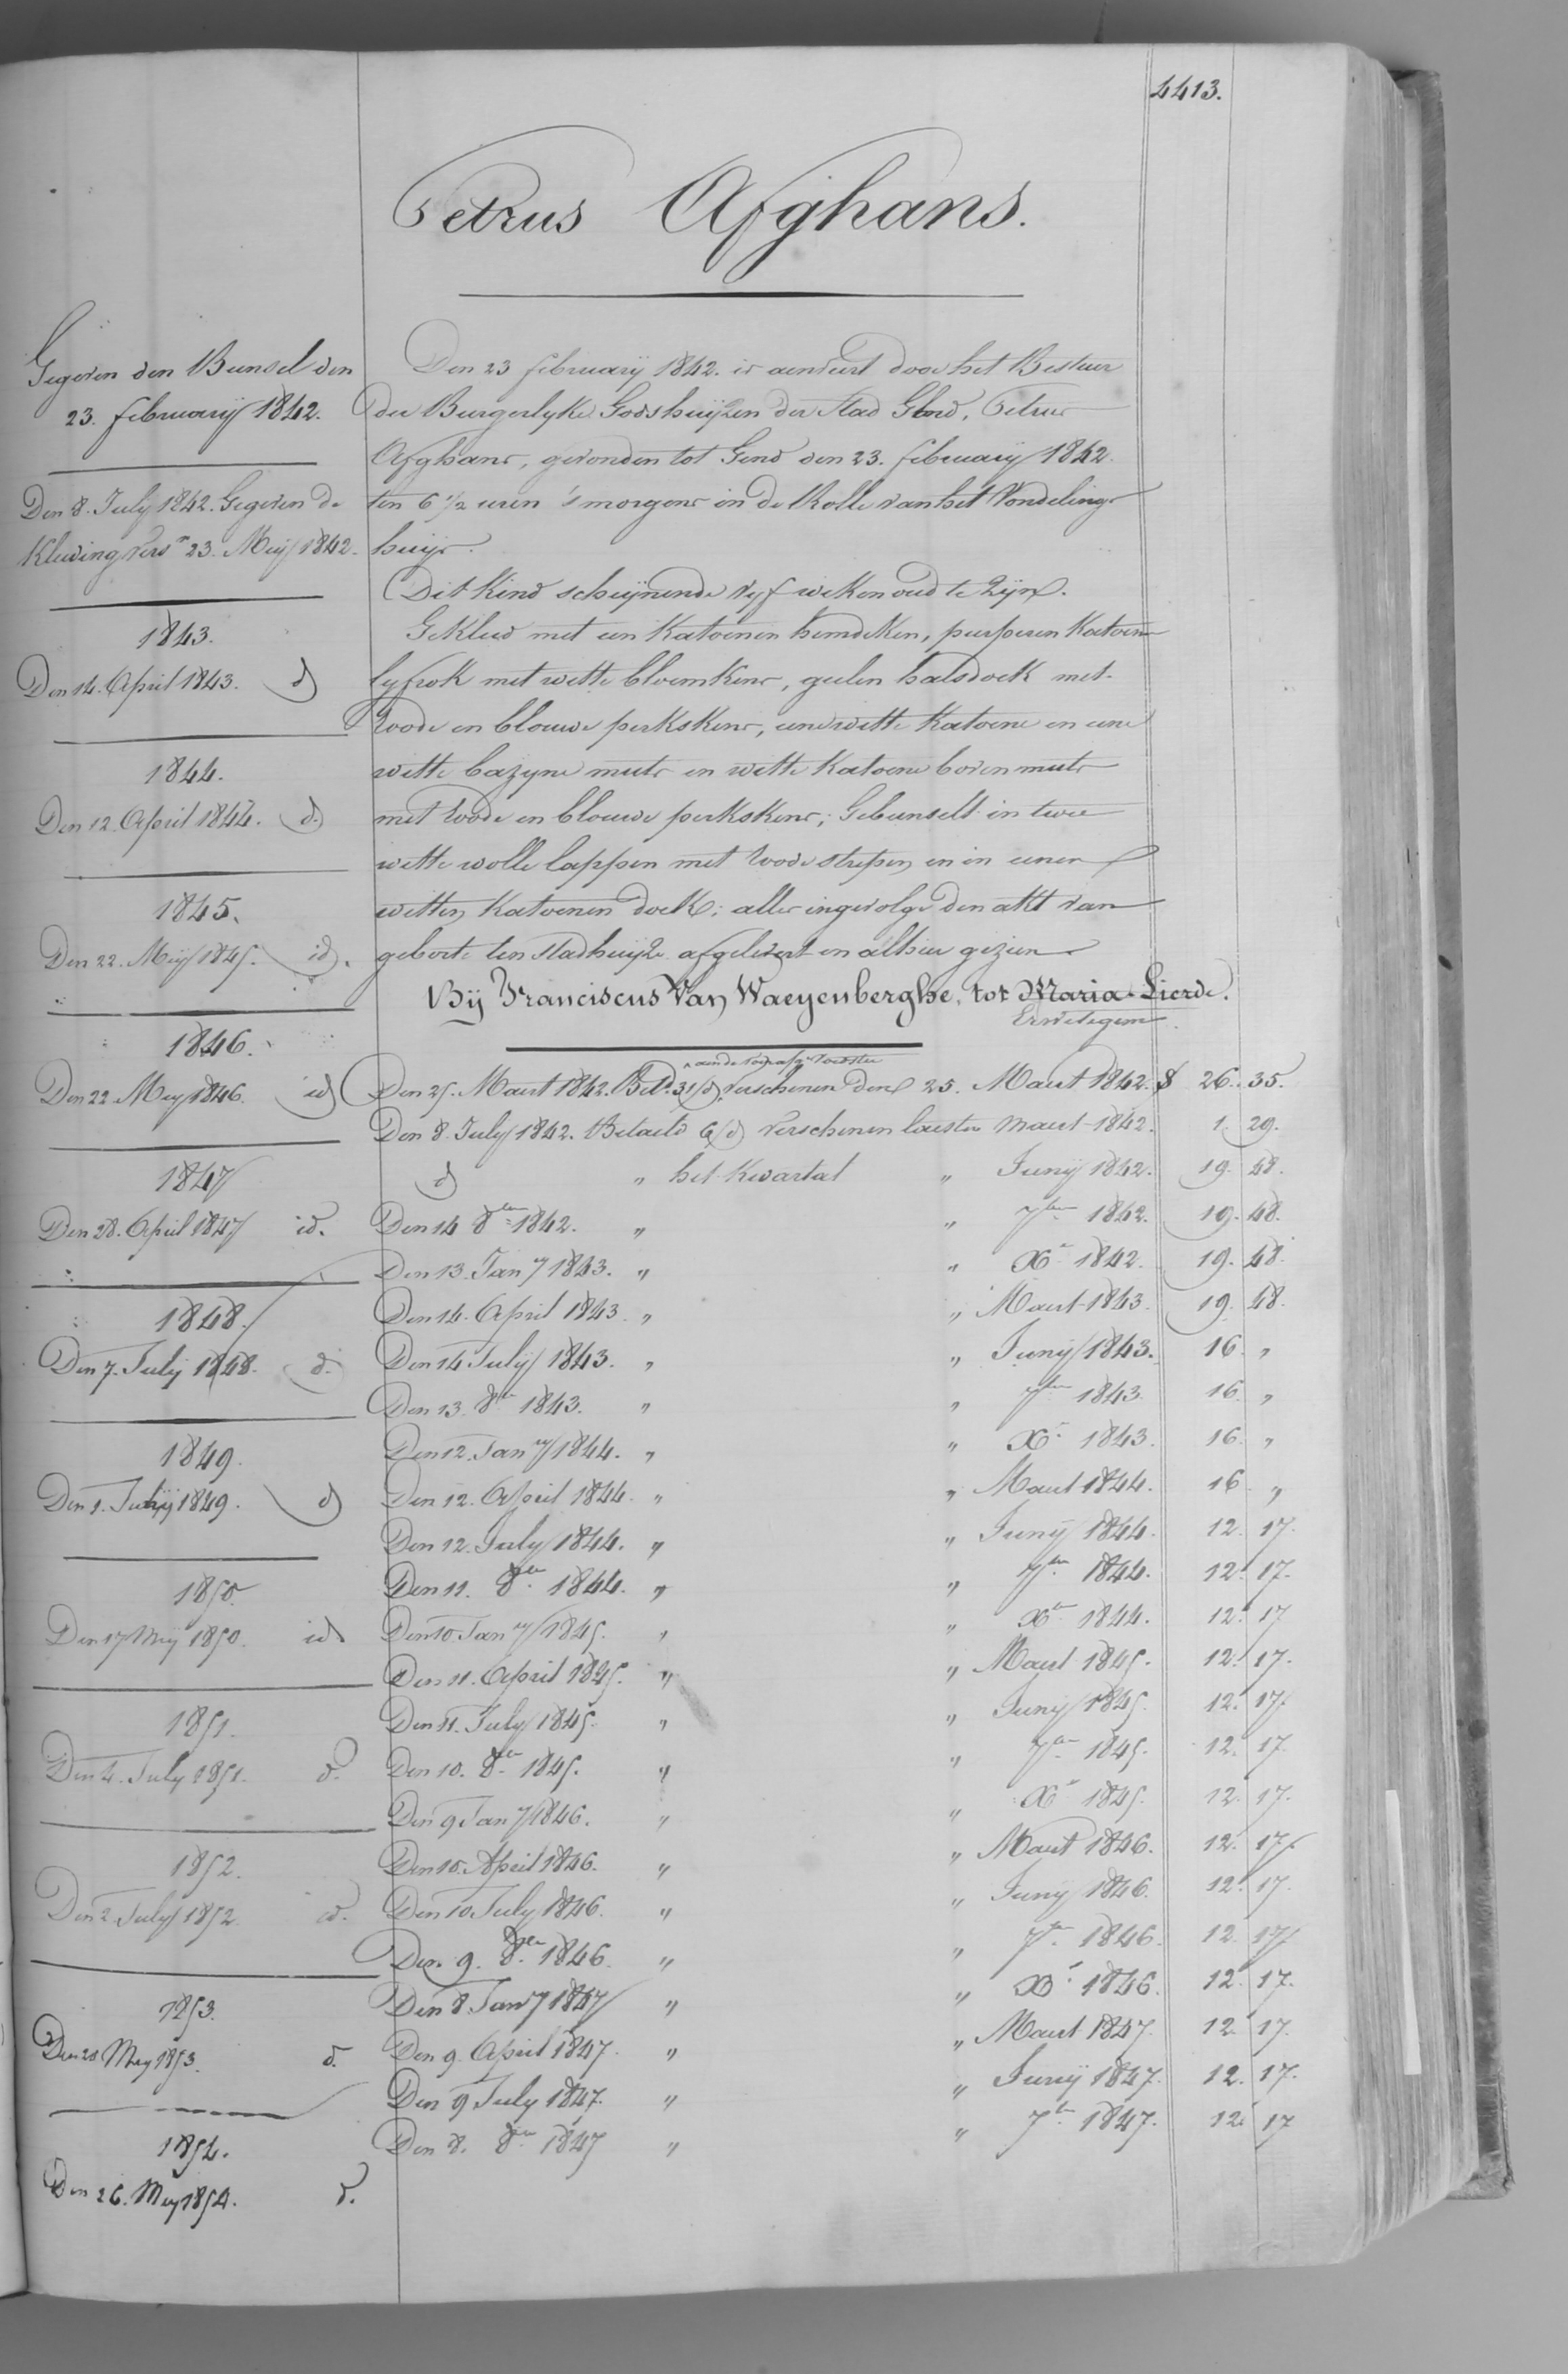 4413.
Petrus Afghans.
Gegeven den Bunsel den
23. february 1842.
Den 8. July 1842. Gegeven de
Kleeding vers.n 23. Meij 1842.
1843.
Den 14. April 1843. d
1844.
Den 12. April 1844. d.
1845.
Den 22. Meij 1845. id.
1846.
Den 22 Mey 1846. id
1847
Den 28. April 1847 id.
1848.
Den 7. July 1848. d.
1849.
Den 1. 1849. d
1850.
Den 17 Meij 1850. id
1851.
Den 4. July 1851. d.
1852.
Den 2. July 1852. id.
1853.
Den 20 Mey 1853. d.
1854.
Den 26. Mey 1854. d.
Den 23 februarij 1842. is aenveert door het Bestuer
der Burgerlyke Godshuijzen der Stad Gend, Petrus
Afghans, gevonden tot Gend den 23. february 1842.
ten 6 1/2 uren 's morgens in de Rolle van het Vondelings
huijs.
Dit Kind schijnende vyf weken oud te Zijn.
Gekleed met een Katoenen hemdeken, purperen Katoene
lyfrok met witte bloemkens, geelen halsdoek met
roode en blouwe perkskens, eene witte Katoene en eene
witte bazyne muts en witte Katoene boven muts
met roode en blouwe perkskens; Gebunselt in twee
witte wolle lappen met roode strepen en in eenen
witten Katoenen doek; alles ingevolge den akt van
geborte ten Stadhuijze afgelevert en alhier gezien
Bij Franciscus Van Waeyenberghe, tot Maria-Lierde.
Erwetegem
Den 25. Maert 1842. Bet.d 31/d verschenen den 25. Maert 1842. $ 26. 35.
Den 8. July 1842. Betaeld 6/d verschenen laesten maert 1842. 1. 29.
d " het Kwartal " Junij 1842. 19. 48.
Den 14 8ber 1842. " " 7ber 1842. 19. 48.
Den 13. Jan.y 1843. " " Xr 1842. 19. 48.
Den 14. April 1843. " " Maert 1843. 19. 48.
Den 14 July 1843. " " Junij 1843. 16. "
Den 13. 8br 1843. " " 7ber 1843. 16. "
Den 12. Jan.y 1844. " " Xr 1843. 16. "
Den 12. April 1844. " " Maert 1844. 16. "
Den 12. July 1844. " " Junij 1844. 12. 17.
Den 11. 8ber 1844. " " 7ber 1844. 12. 17.
Den 10 Jan.y 1845. " " Xr 1844. 12. 17
Den 11. April 1845. " " Maert 1845. 12. 17.
Den 11. July 1845. " " Junij 1845. 12. 17.
Den 10. 8ber 1845. " " 7ber 1845. 12. 17.
Den 9 Jan.y 1846. " " Xr 1845. 12. 17.
Den 10. April 1846. " " Maert 1846. 12. 17.
Den 10 July 1846. " " Junij 1846. 12. 17.
Den 9. 8ber 1846. " " 7br 1846. 12. 17
Den 8. Jan.y 1847 " " Xr 1846. 12. 17.
Den 9. April 1847. " " Maert 1847. 12. 17.
Den 9 July 1847. " " Junij 1847. 12. 17.
Den 8. 8ber 1847 " " 7br 1847. 12. 17